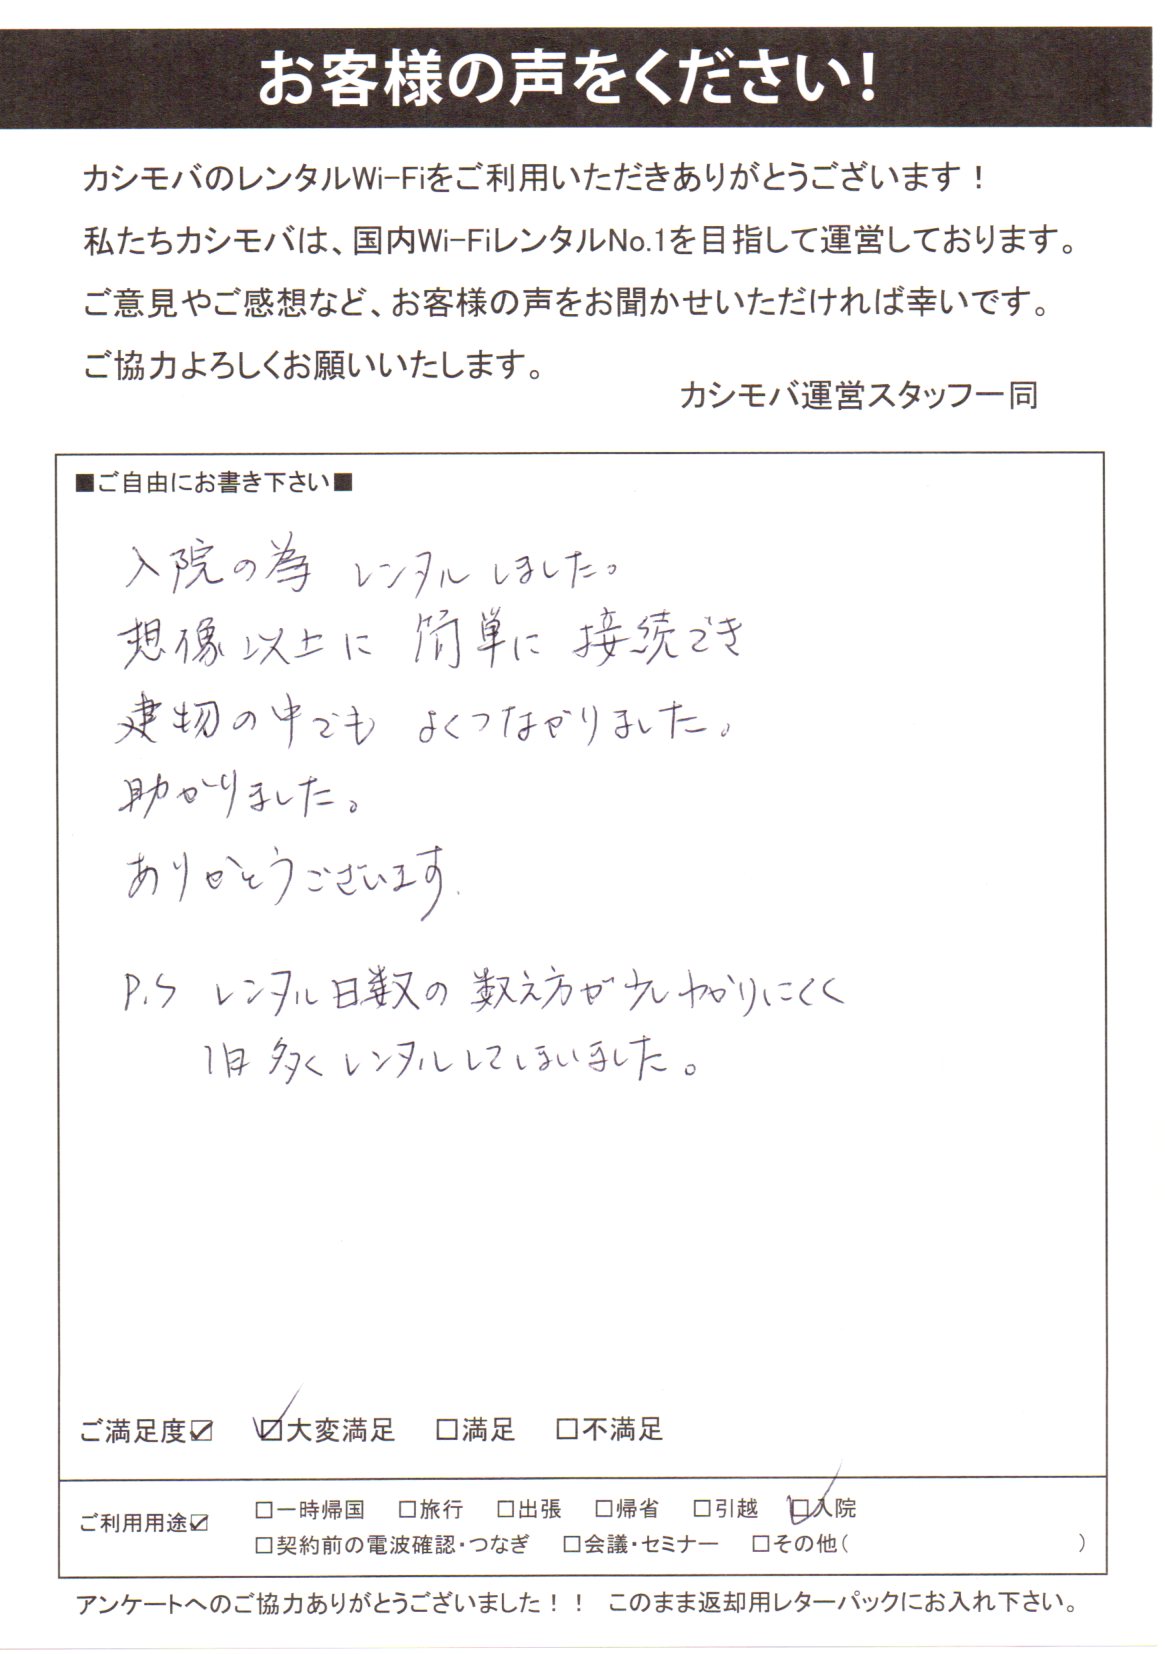 お客様の声をください！
カシモバのレンタルWi-Fiをご利用いただきありがとうございます！
私たちカシモバは、国内Wi-FiレンタルNo.1を目指して運営しております。
ご意見やご感想など、お客様の声をお聞かせいただければ幸いです。
ご協力よろしくお願いいたします。
カシモバ運営スタッフ一同
■ご自由にお書き下さい■
入院の為 レンタルしました。
想像以上に 簡単に 接続でき
建物の中でも よくつながりました。
助かりました。
ありがとうございます.
P.S レンタル日数の 数え方が少しわかりにくく
1日多くレンタルしてしまいました。
ご満足度☑ ☑大変満足 □満足 □不満足
ご利用用途☑ □一時帰国 □旅行 □出張 □帰省 □引越 ☑入院
□契約前の電波確認・つなぎ □会議・セミナー □その他( )
アンケートへのご協力ありがとうございました！！ このまま返却用レターパックにお入れ下さい。